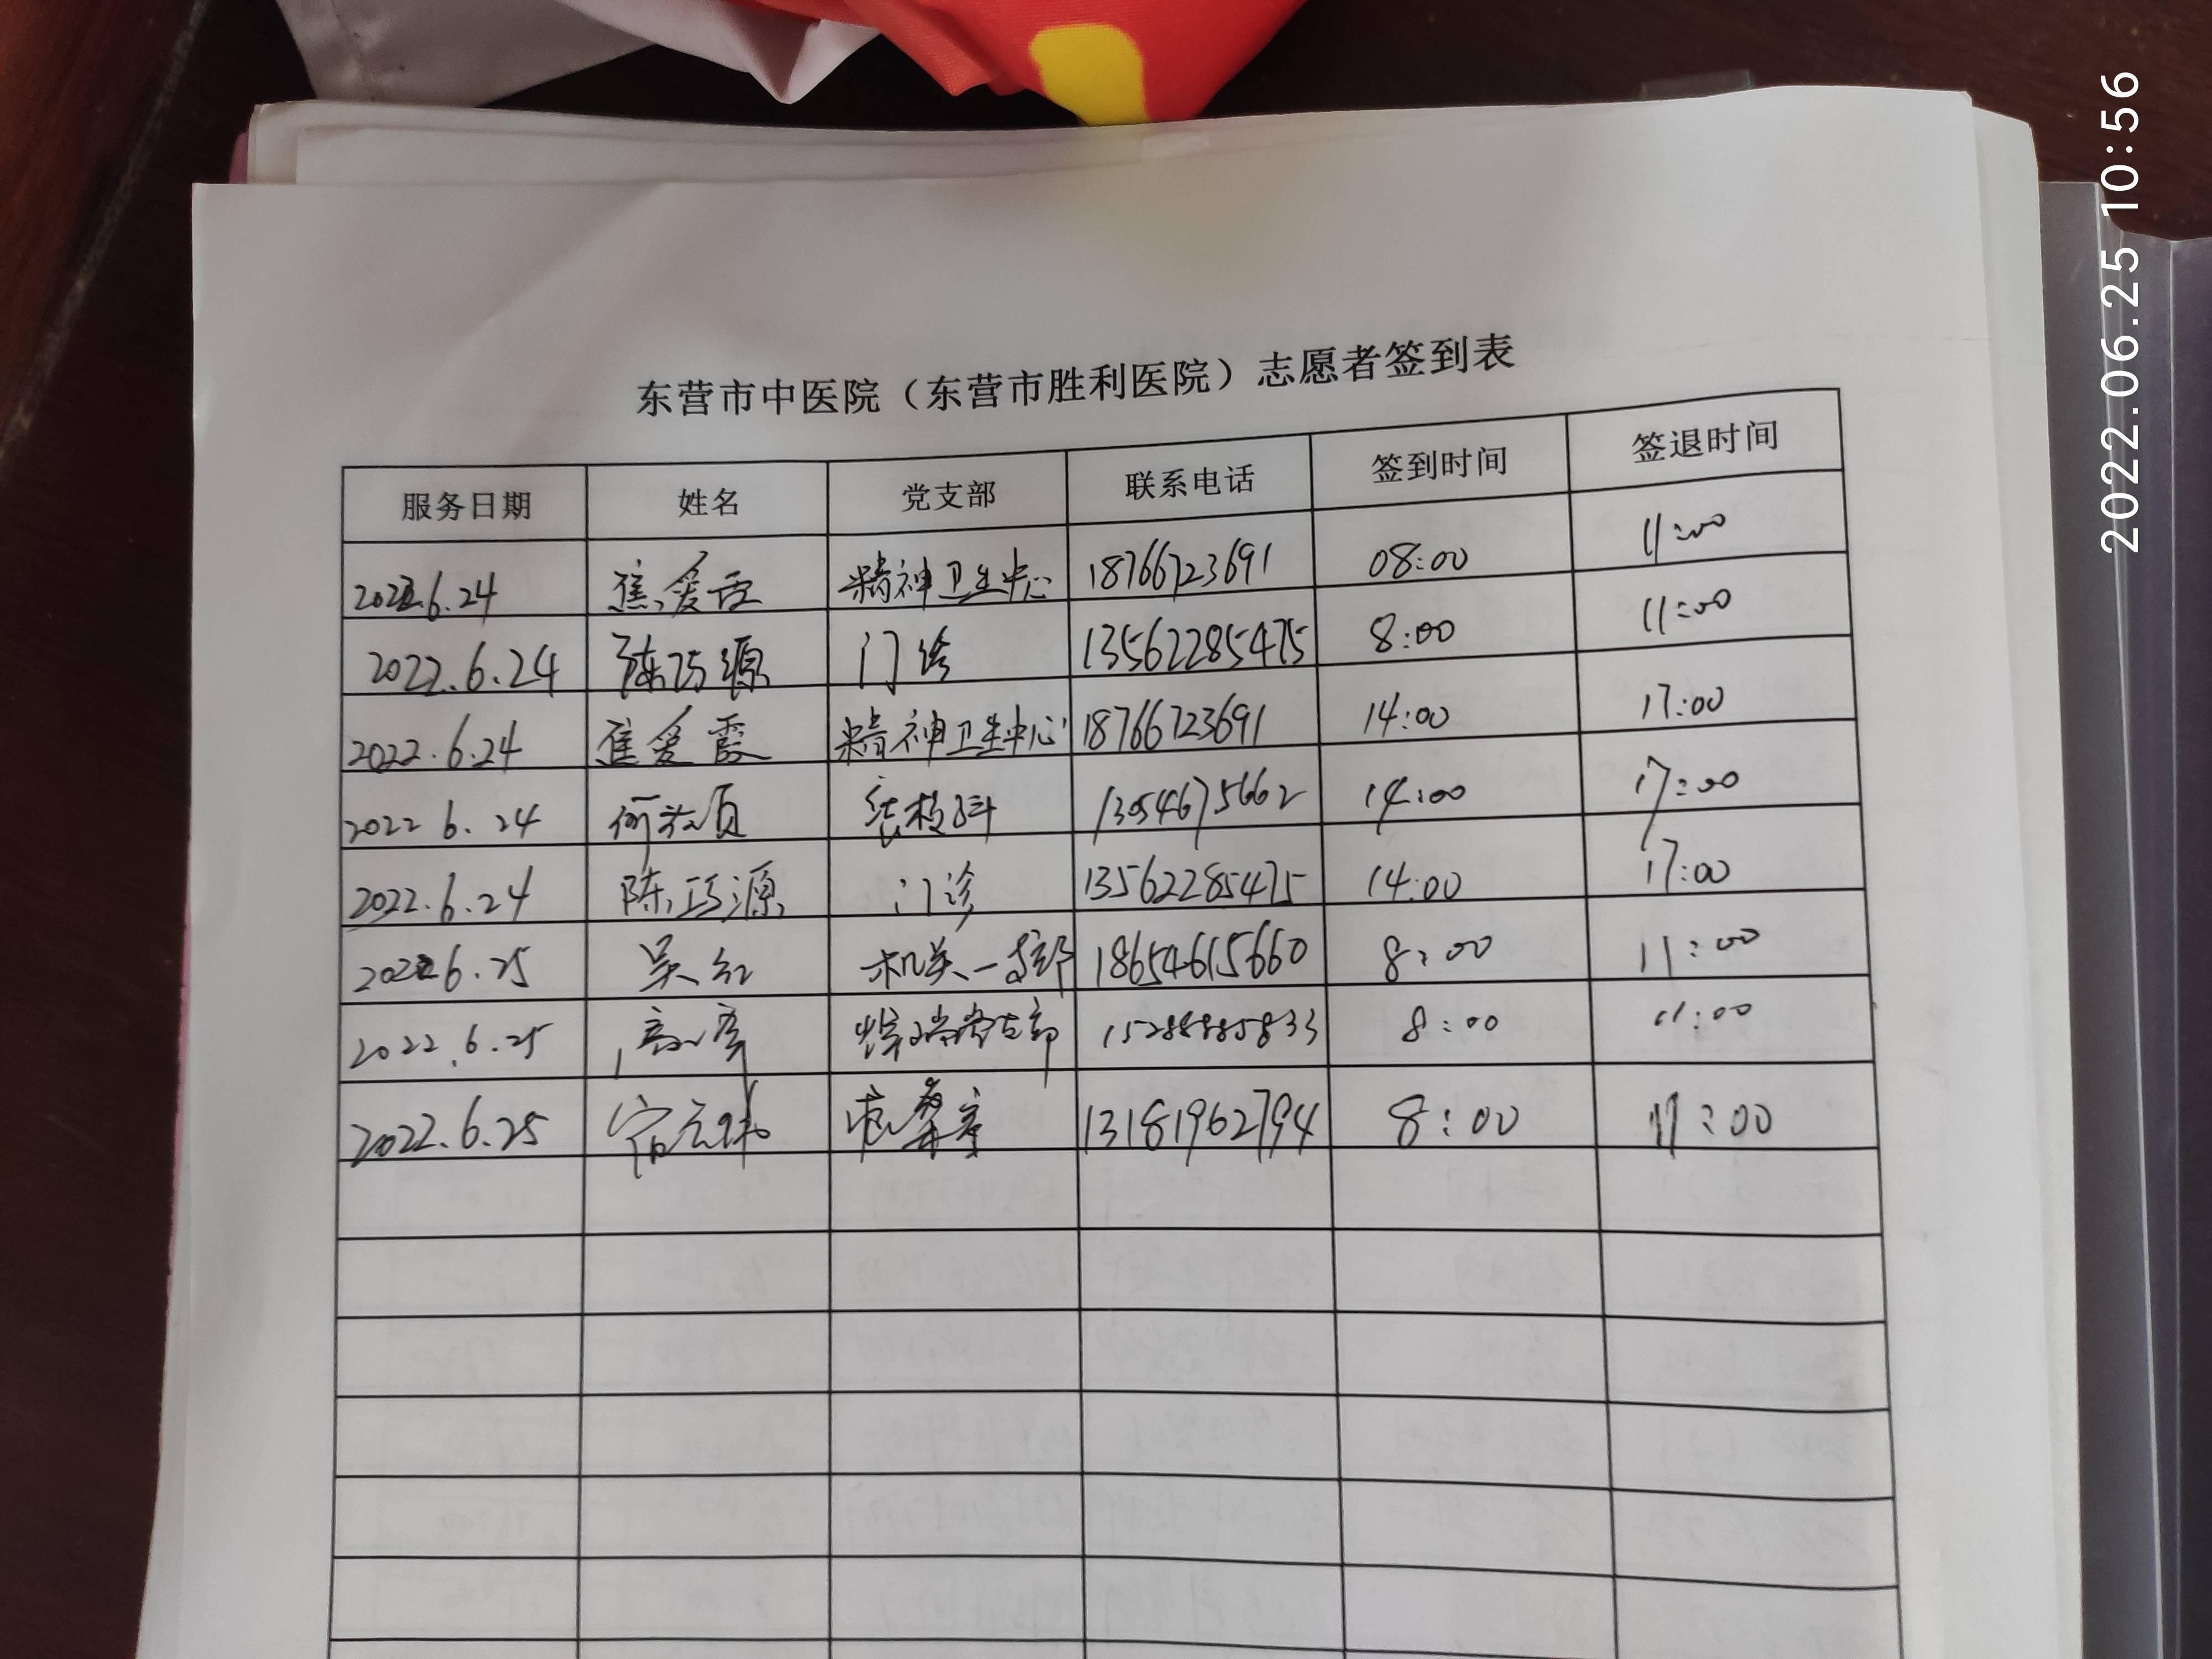 东营市中医院（东营市胜利医院）志愿者签到表
服务日期 姓名 党支部 联系电话 签到时间 签退时间
2022.6.24 焦爱霞 精神卫生中心 18766723691 08:00 11:00
2022.6.24 陈巧源 门诊 13562285475 8:00 11:00
2022.6.24 焦爱霞 精神卫生中心 18766723691 14:00 17:00
2022 6.24 13054675662 14:00 17:00
2022.6.24 陈巧源 门诊 13562285475 14:00 17:00
2022 6.25 吴红 机关一支部 18654615660 8:00 11:00
2022.6.25 15288885833 8:00 11:00
2022.6.25 13181962794 8:00 11:00
2022.06.25 10:56